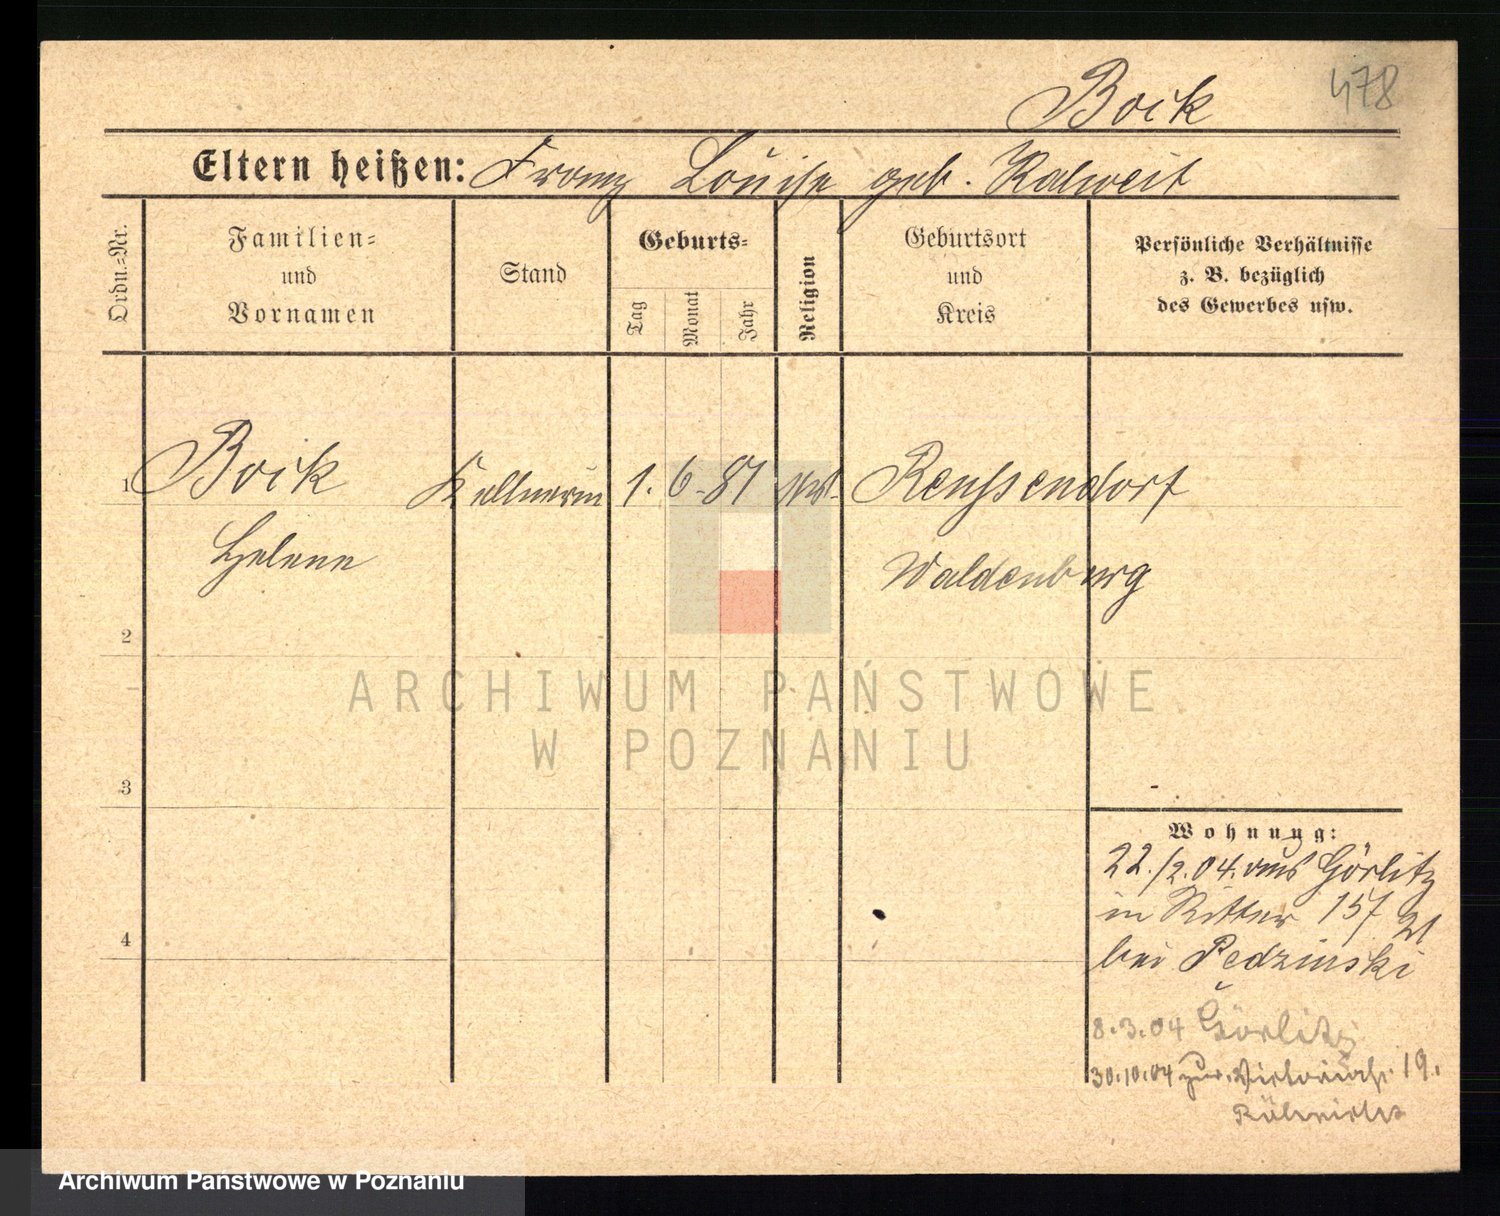 478
Boik
Eltern heißen: Franz Louise geb. Kalweit
Ordn.-Nr.
Familien-
und
Vornamen
Stand
Geburts-
Tag
Monat
Jahr
Religion
Geburtsort
und
Kreis
Persönliche Verhältnisse
z. B. bezüglich
des Gewerbes usw.
1 Boik Kellnerin 1. 6. 81 Reußendorf
Helene Waldenburg
2
3
4
ARCHIWUM PAŃSTWOWE
W POZNANIU
Wohnung:
22./2.04. aus Görlitz
in Ritter 157 21
bei Pędzinski
8.3.04 Görlitz
30.10.04 zur. Victoriastr. 19.
Archiwum Państwowe w Poznaniu